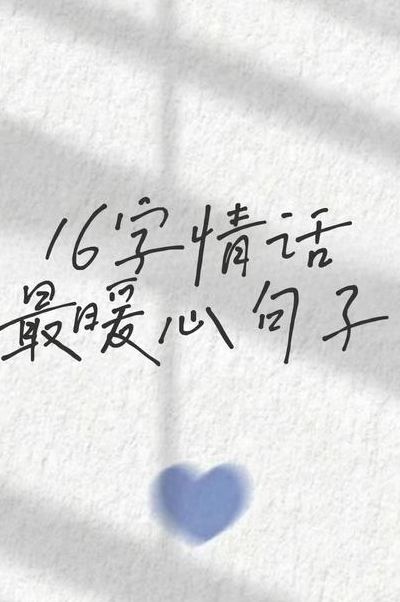 16字情话
最暖心句子